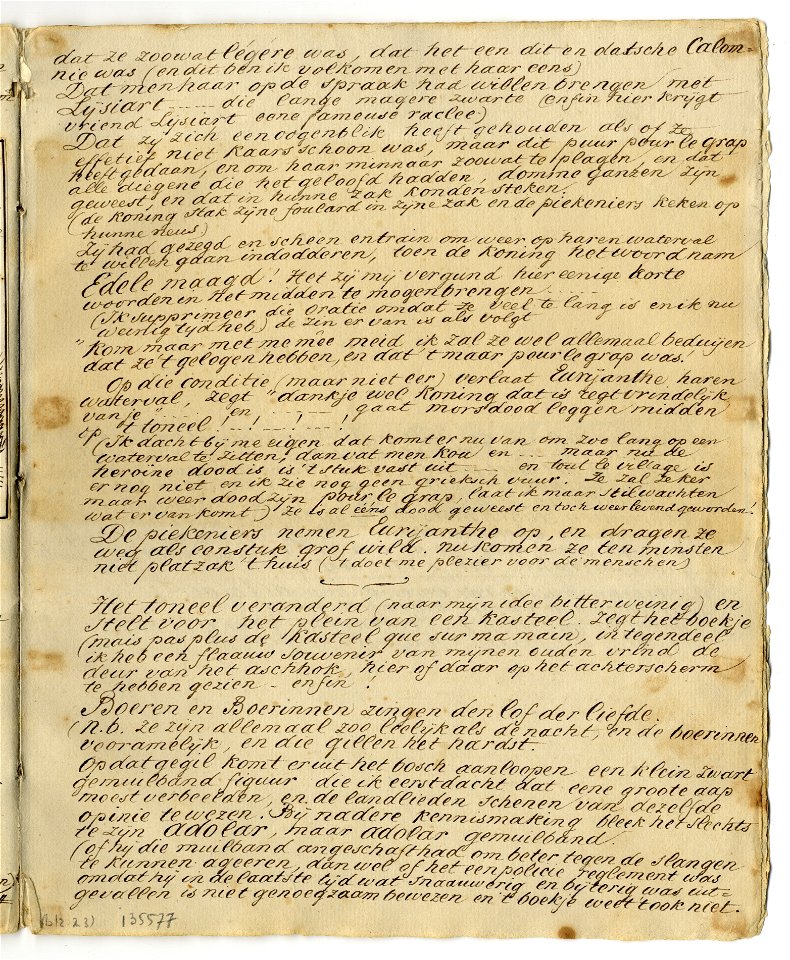 dat ze zoowat légère was, dat het een dit en datsche Calom=
nie was (en dit ben ik volkomen met haar eens)
Dat men haar op de spraak had willen brengen met
Lysiart ...... die lange magere zwarte (enfin hier krijgt
vriend Lysiart eene fameuse raclee)
Dat zy zich een oogenblik heeft gehouden als of ze
effetief niet kaarsschoon was, maar dit puur pour le grap
heeft gedaan, en om haar minnaar zoowat te plagen, en dat
alle diegene die het geloofd hadden, domme ganzen zyn
geweest en dat in hunne zak konden steken.
(de Koning stak zyne foulard in zyne zak en de piekeniers keken op
hunne neus)
Zy had gezegd en scheen entrain om weer op haren waterval
te willen gaan indodderen, toen de Koning het woord nam
Edele maagd! Het zy my vergund hier eenige korte
woorden in het midden te mogen brengen ......
(Ik supprimeer die oratie omdat ze veel te lang is en ik nu
weinig tyd heb) de zin er van is als volgt
"Kom maar met me mêe meid ik zal ze wel allemaal beduijen
dat ze 't gelogen hebben, en dat 't maar pour le grap was!
Op die conditie (maar niet eer) verlaat Eurÿanthe haren
waterval, zegt "dankje wel Koning dat is regt vrindelyk
van je" ...... en ...... gaat morsdood leggen midden
op 't toneel! ! ! !
(Ik dacht by me eigen dat komt er nu van om zoo lang op een
waterval te zitten, dan vat men kou en ... maar nu de
heroine dood is is 't stuk vast uit ...... en tout le village is
er nog niet en ik zie nog geen grieksch vuur. Ze zal zeker
maar weer dood zyn pour le grap, laat ik maar stil wachten
wat er van komt) Ze is al eens dood geweest en toch weer levend geworden!
De piekeniers nemen Eurÿanthe op, en dragen ze
weg als een stuk grof wild. nu komen ze ten minsten
niet platzak 't huis ('t doet me plezier voor de menschen)
Het toneel veranderd (naar mijn idee bitter weinig) en
stelt voor het plein van een kasteel. zegt het boekje
(mais pas plus de Kasteel que sur ma main, in tegendeel
ik heb een flaauw souvenir van mynen ouden vrind de
deur van het aschhok, hier of daar op het achterscherm
te hebben gezien – enfin!
Boeren en Boerinnen zingen den lof der liefde.
(N.b. ze zyn allemaal zoo leelyk als de nacht, en de boerinnen
vooramelyk, en die gillen het hardst.
Op dat gegil komt er uit het bosch aanloopen een klein zwart
gemuilband figuur die ik eerst dacht dat eene groote aap
moest verbeelden, en de landlieden schenen van dezelfde
opinie te wezen. By nadere kennismaking bleek het slechts
te zyn Adolar, maar Adolar gemuilband.
(of hy die muilband angeschaft had om beter tegen de slangen
te kunnen ageeren, dan wel of het een policie reglement was
omdat hy in de laatste tyd wat snaauwerig en byterig was uit=
gevallen is niet genoegzaam bewezen en 't boekje weet 't ook niet.
(blz. 23) 135577